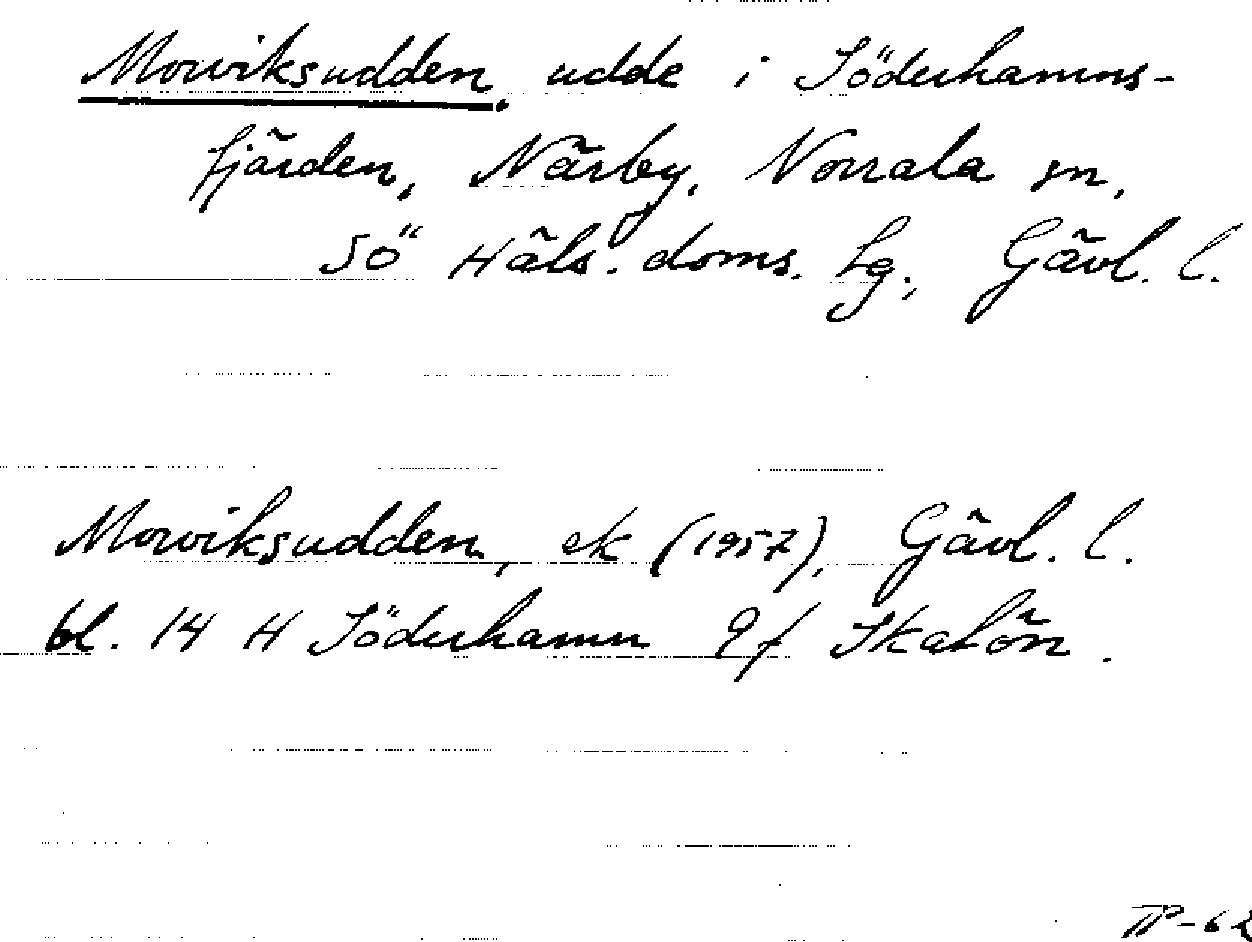 Morviksudden, udde i Söderhamns-
fjärden, Närby, Norrala sn,
Sö Häls. doms. Lg., Gävl. l.
Morviksudden, ek (1957), Gävl. l.
bl. 14 H Söderhamn 9f Skatön.
TP-62